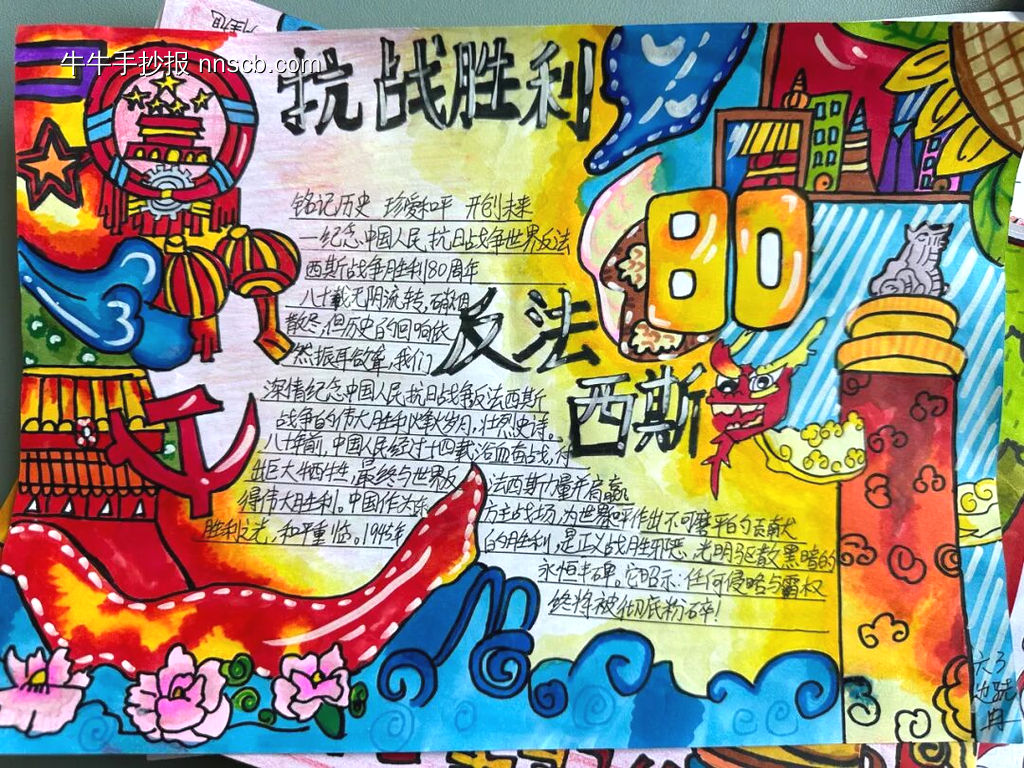 牛牛手抄报 nnscb.com
抗战胜利
80
反法
西斯
铭记历史 珍爱和平 开创未来
—纪念中国人民抗日战争世界反法
西斯战争胜利80周年
八十载光阴流转,硝烟
散尽,但历史的回响依
然振耳欲聋,我们
深情纪念中国人民抗日战争反法西斯
战争的伟大胜利烽火岁月,壮烈史诗。
八十年前,中国人民经过十四载浴血奋战,付
出巨大牺牲,最终与世界反法西斯力量并肩赢
得伟大胜利。中国作为东方主战场,为世界和平作出不可磨平的贡献大
胜利之光,和平重临。1945年的胜利,是正义战胜邪恶,光明驱散黑暗的
永恒丰碑,它昭示:任何侵略与霸权
终将被彻底粉碎!
六3